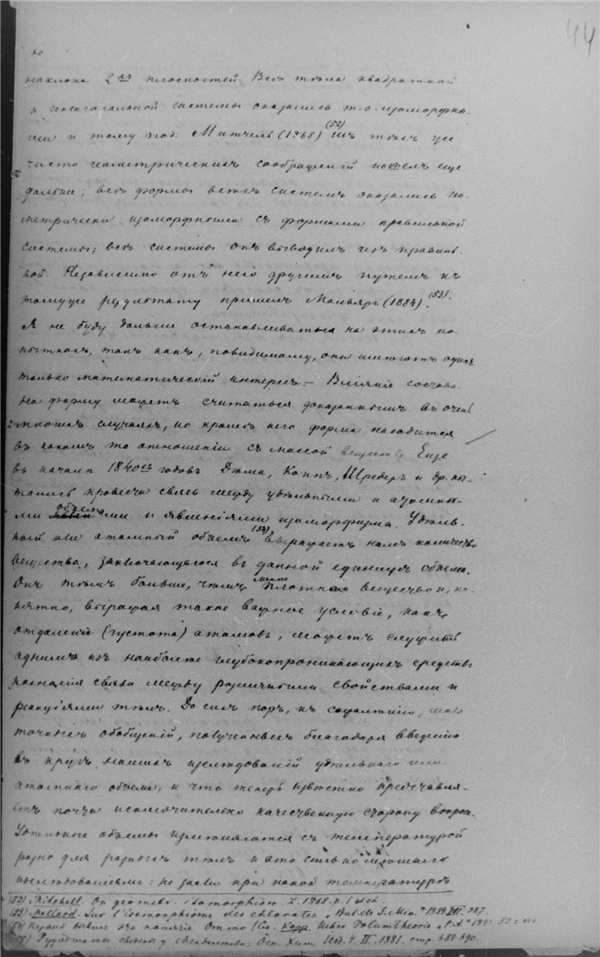 44
наклона 2хъ плоскостей. Всѣ тѣла квадратной
и гексагональной системы оказались т. о. изоморфны-
ми и тому под. Митчель (1868) (52) изъ тѣхъ же
чисто геометрическихъ соображеній пошелъ еще
дальше; всѣ формы всѣхъ системъ оказались гео-
метрически изоморфными съ формами правильной
системы; всѣ системы онъ выводилъ изъ правиль-
ной. Независимо отъ него другимъ путемъ къ
тому же результату пришелъ Мальяръ (1884) (53).
Я не буду дальше останавливаться на этихъ по-
пыткахъ, такъ какъ, повидимому, они имѣютъ однѣ
только математическій интересъ. – Вліяніе состава
на форму можетъ считаться доказаннымъ въ очень
многихъ случаяхъ, но кромѣ него форма находится
въ какомъ то отношеніи съ массой вещества. Еще
въ началѣ 1840хъ годовъ Дюма, Коппъ, Шредеръ и др. пы-
тались провести связь между удѣльными и атомны-
ми объемами и явленіями изоморфизма. Удѣль-
ный или атомный объемъ (54) выражаетъ намъ количество
вещества, заключающегося въ данной единицѣ объема.
Онъ тѣмъ больше, чѣмъ плотнѣе вещество и, по-
нятно, выражая такое важное условіе, какъ
отдаленіе (густота) атомовъ, можетъ служить
однимъ изъ наиболѣе глубокопроникающихъ средствъ
познанія связи между различными свойствами и
реакціями тѣлъ. До сихъ поръ, къ сожалѣнію, мало
точныхъ обобщеній, полученныхъ благодаря введенію
въ кругъ нашихъ изслѣдованій удѣльнаго или
атомнаго объема, и что теперь извѣстно представля-
етъ почти исключительно качественную сторону вопроса.
Удѣльные объемы измѣняются съ температурой
разно для разныхъ тѣлъ и это сильно мѣшаетъ
изслѣдованіямъ: не зная при какой температурѣ
(52) Mitchell. On geometr. isomorphism. 1868. p.
(53) Mallard. Sur l'isomorphisme des chlorates. Bul. de S. Min. 1884 VII.
(54) Первый ввелъ это понятіе Отто (См. Kopp. Ueber Atomtheorie
(55) Результаты сведены у Менделѣева: Осн. Хим. Изд. 4. II. 1881. стр. 688-690.